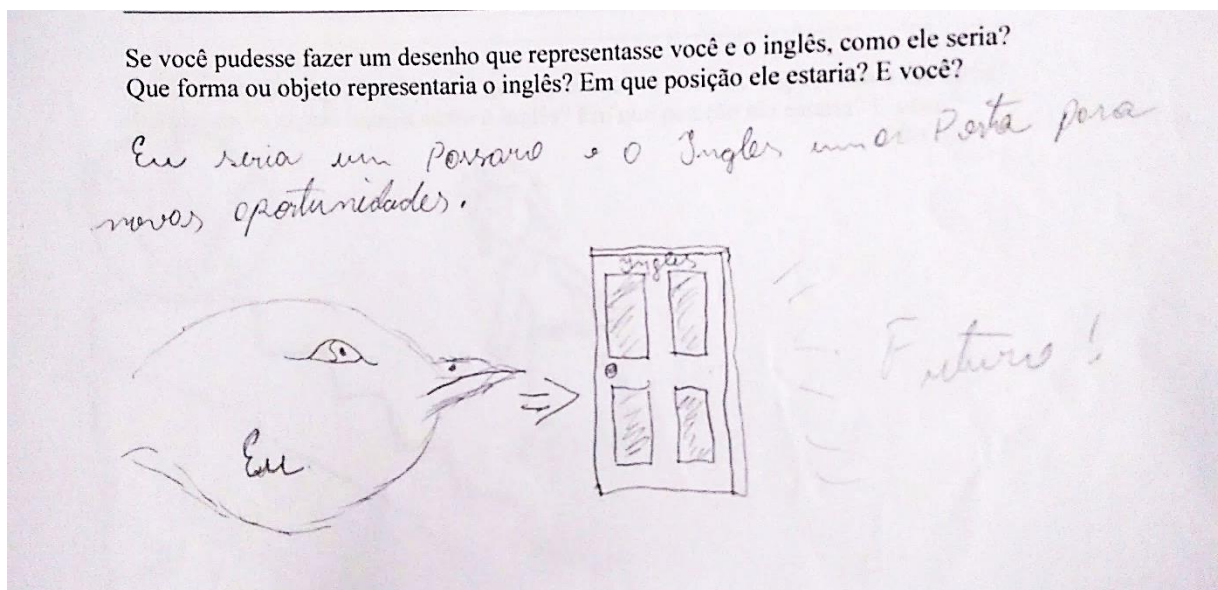 Se você pudesse fazer um desenho que representasse você e o inglês, como ele seria?
Que forma ou objeto representaria o inglês? Em que posição ele estaria? E você?
Eu seria um Passaro e o Ingles uma Porta para
novas oportunidades.
Ingles
Eu
Futuro!